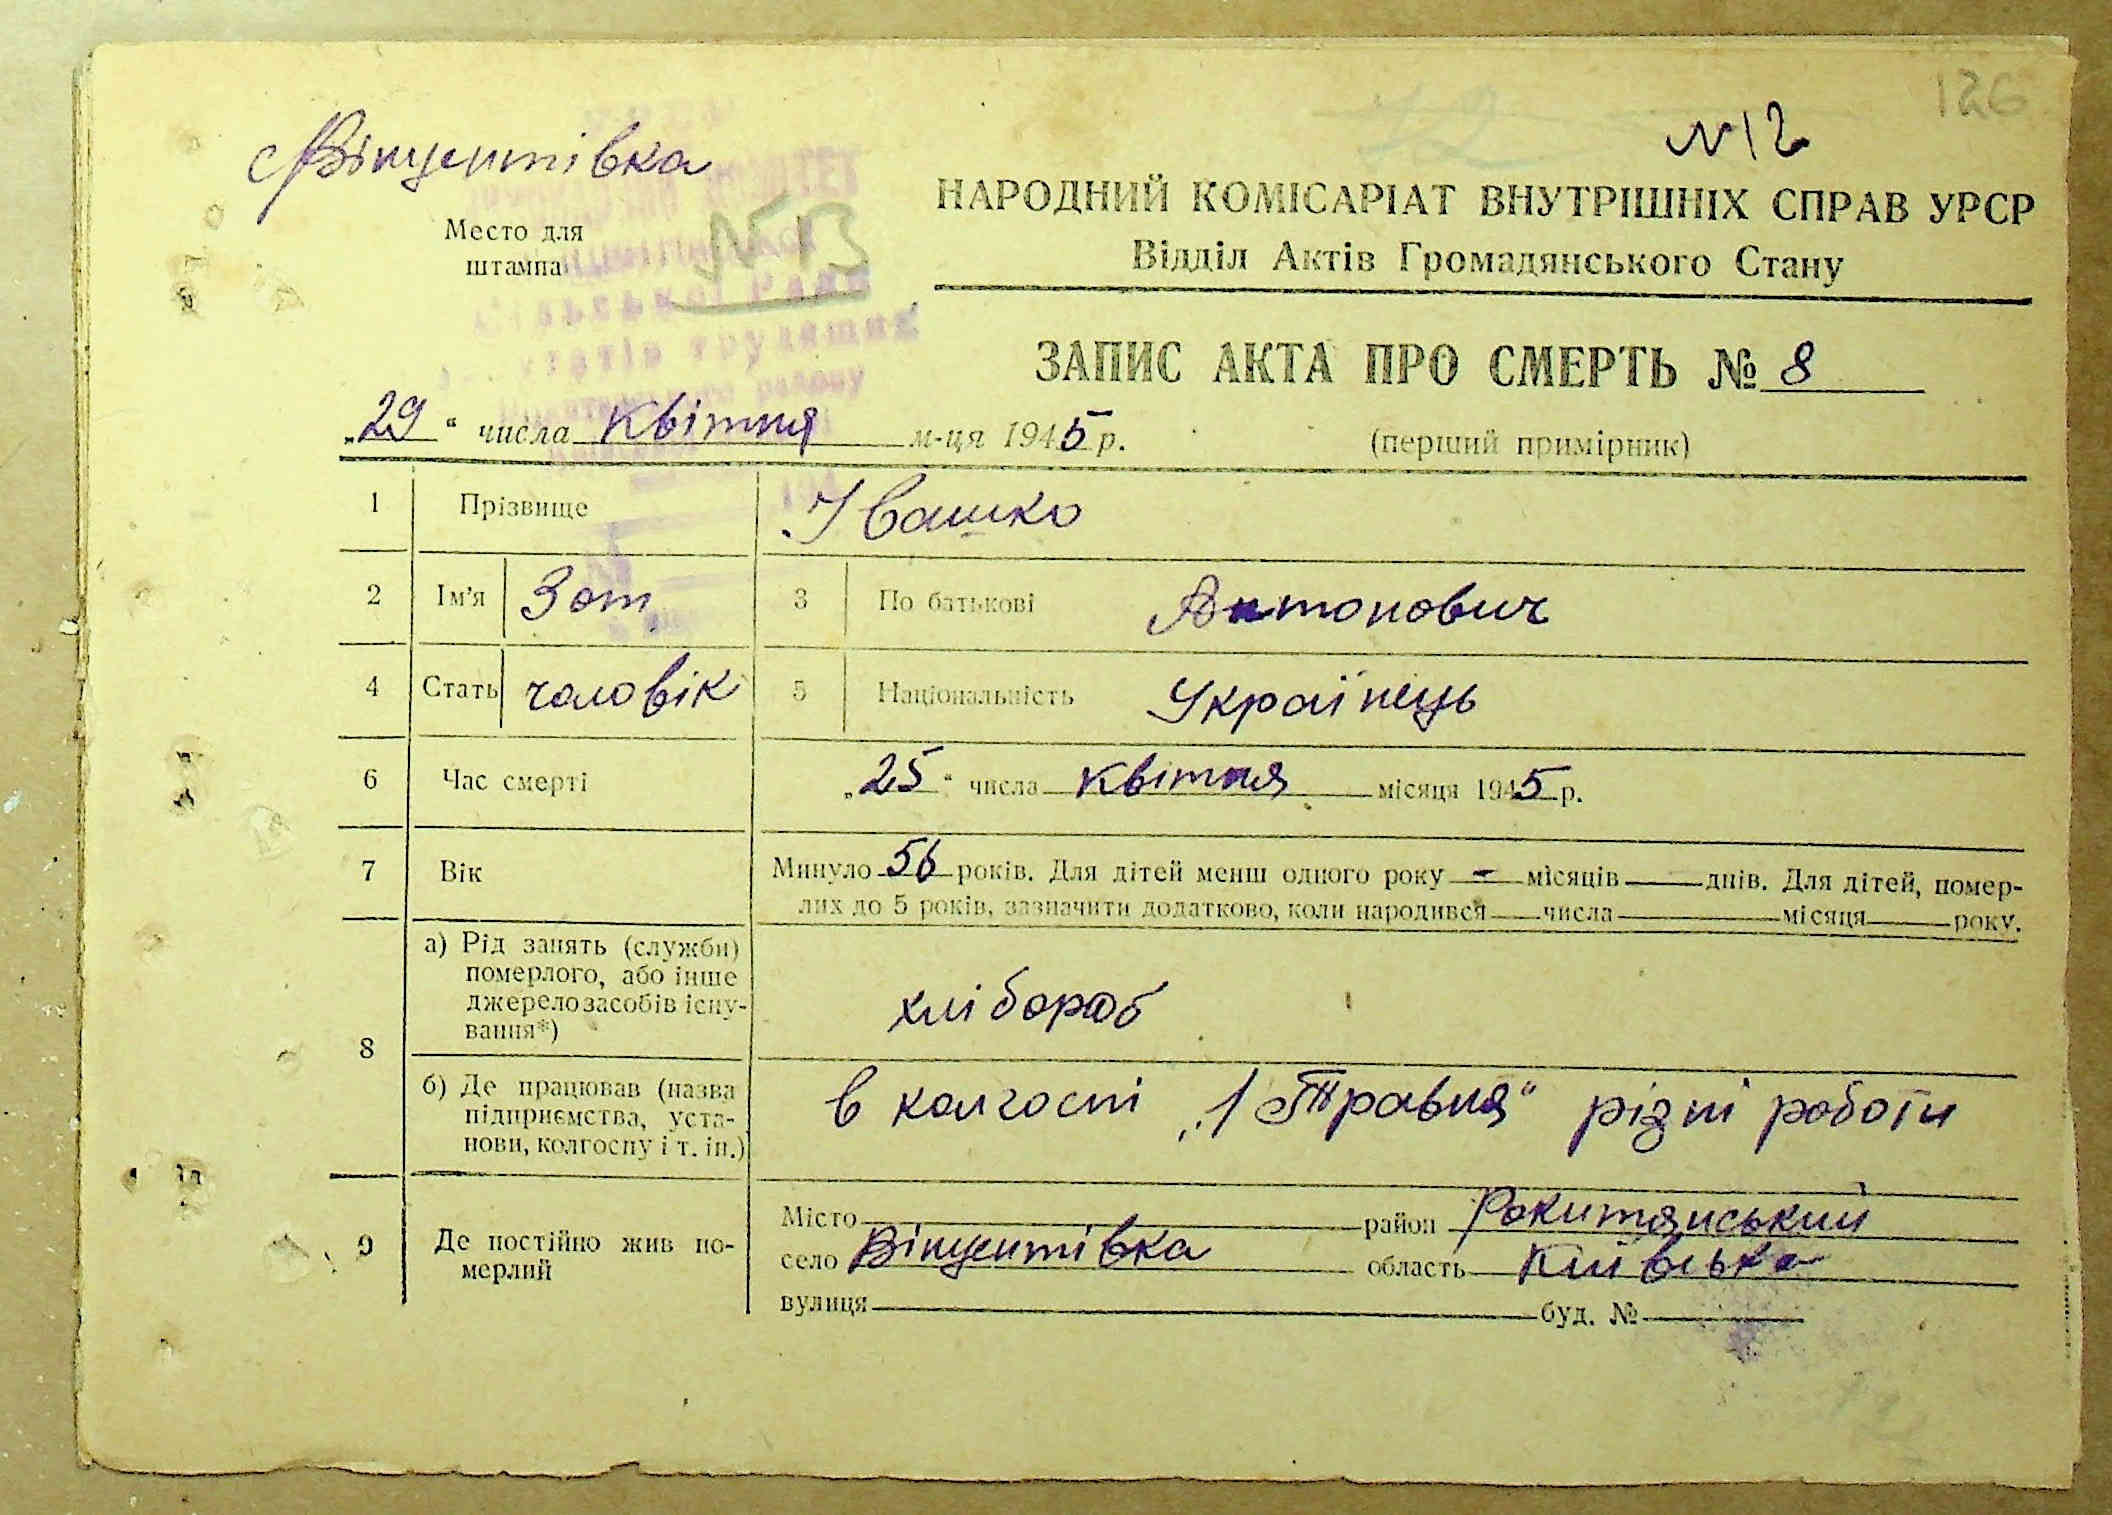 126
№12
Вінцентівка
Место для
штампа
№ 13
НАРОДНИЙ КОМІСАРІАТ ВНУТРІШНІХ СПРАВ УРСР
Відділ Актів Громадянського Стану
ЗАПИС АКТА ПРО СМЕРТЬ № 8
„29" числа квітня м-ця 1945 р.
(перший примірник)
1 Прізвище Івашко
2 Ім'я Зот 3 По батькові Антонович
4 Стать чоловік 5 Національність Українець
6 Час смерті „25" числа квітня місяця 1945 р.
7 Вік Минуло 56 років. Для дітей менш одного року — місяців днів. Для дітей, помер-
лих до 5 років, зазначити додатково, коли народився числа місяця року.
8 а) Рід занять (служби)
померлого, або інше
джерело засобів існу-
вання*)
хлібороб
б) Де працював (назва
підприємства, уста-
нови, колгоспу і т. ін.)
в колгоспі „1 Травня" різні роботи
9 Де постійно жив по-
мерлий
Місто район Рокитянський
село Вінцентівка область Київська
вулиця буд. №